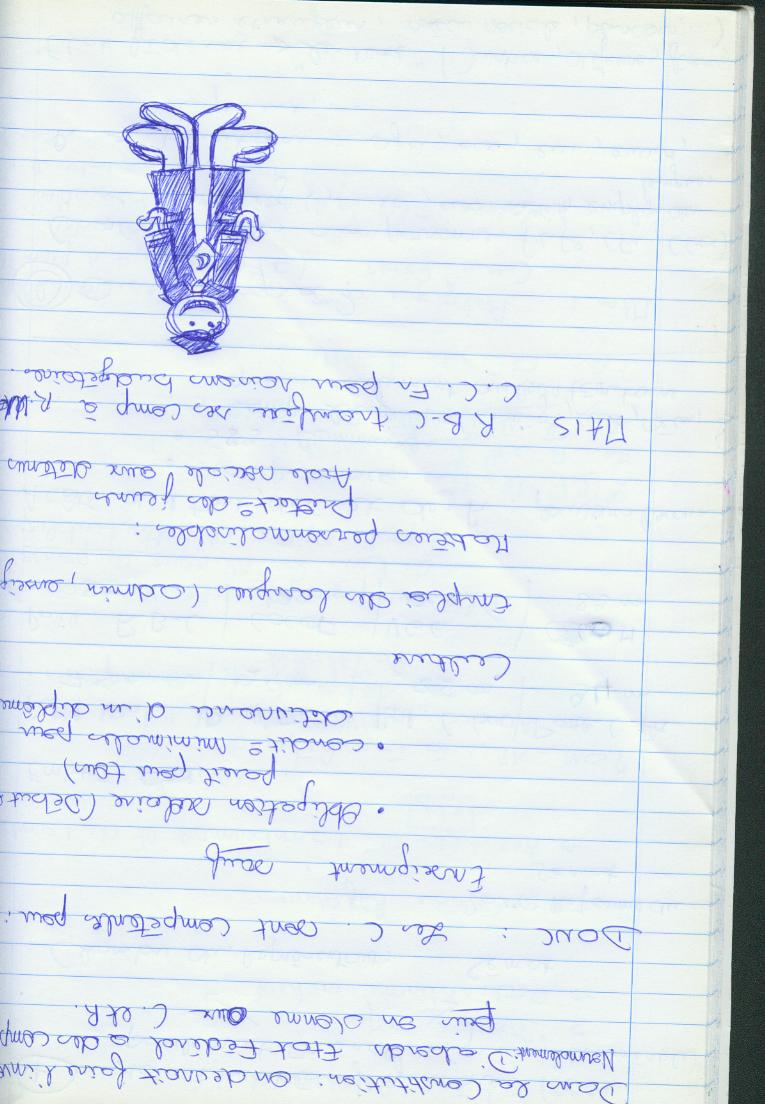 Dans la Constitution: On devrait faire l'inv
Normalement: D'abords Etat Fédéral a des comp
puis on donne aux C. et R.
DONC : Les C. sont compétentes pour :
Enseignment sauf
• Obligation scolaire (Début
pareil pour tous)
• condit° minimales pour
délivrance d'un diplôme
Culture
Emploi des langues (admin, enseig
Matières personnalisables :
Protect° des jeunes
Aide sociale aux détenus
MAIS R B-C transfère ses comp à R.W
C.C. Fr pour raisons budgétaires.